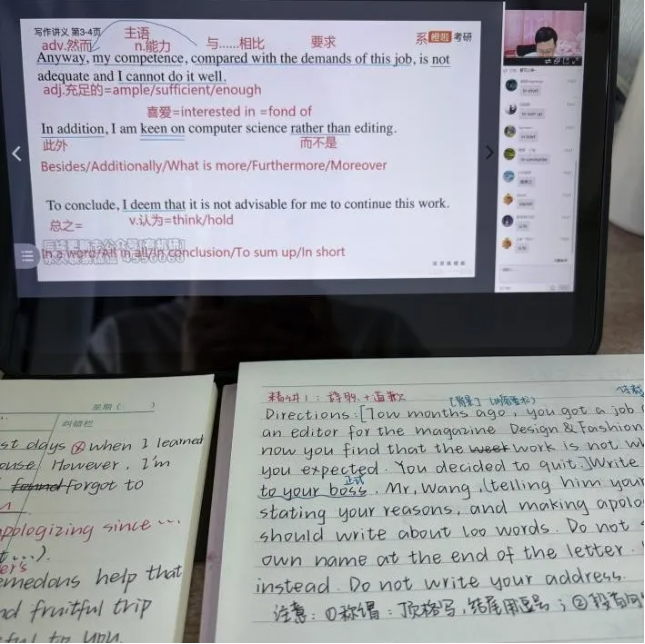 写作讲义 第3-4页
主语
系 橙啦 考研
adv.然而 n.能力 与......相比 要求
Anyway, my competence, compared with the demands of this job, is not
adequate and I cannot do it well.
adj.充足的=ample/sufficient/enough
喜爱=interested in =fond of
In addition, I am keen on computer science rather than editing.
此外 而不是
Besides/Additionally/What is more/Furthermore/Moreover
To conclude, I deem that it is not advisable for me to continue this work.
总之= v.认为=think/hold
In a word/All in all/In conclusion/To sum up/In short
星期( )
纠错栏
st days when I learned
However, I'm
found forgot to
apologizing since ...
t...).
er's
emedous help that
nd fruitful trip
ful to you.
精讲1: 辞职+道歉
Directions: [Tow months ago, you got a job
an editor for the magazine Design & Fashion
now you find that the week work is not
you expected. You decided to quit.] Write
正式
to your boss, Mr, Wang, (telling him your
stating your reasons, and making apolo
should write about 100 words. Do not
own name at the end of the letter.
instead. Do not write your address.
注意: ①称谓: 顶格写, 结尾用逗号; ②